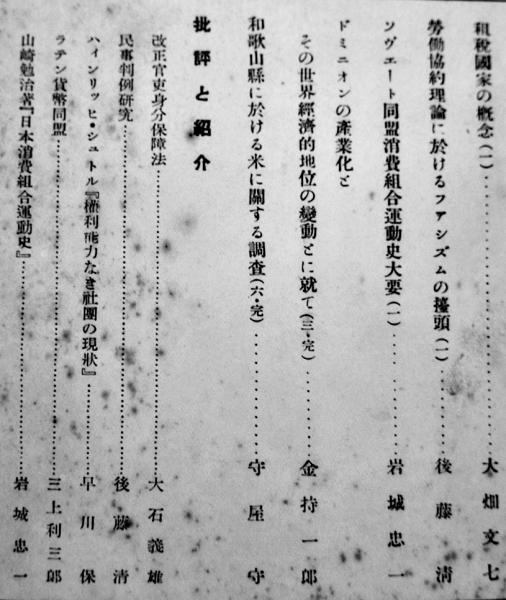 租稅國家の概念(一)……………………大畑文七
勞働協約理論に於けるファシズムの擡頭(一)……後藤淸
ソヴエート同盟消費組合運動史大要(一)……………岩城忠一
ドミニオンの產業化と
その世界經濟的地位の變動とに就て(三・完)…………金持一郎
和歌山縣に於ける米に關する調査(六・完)……………守屋守
批評と紹介
改正官吏身分保障法……………………大石義雄
民事判例硏究……………………後藤淸
ハインリッヒ・シュトル『權利能力なき社團の現狀』…………早川保
ラテン貨幣同盟……………………三上利三郎
山崎勉治著『日本消費組合運動史』……………………岩城忠一